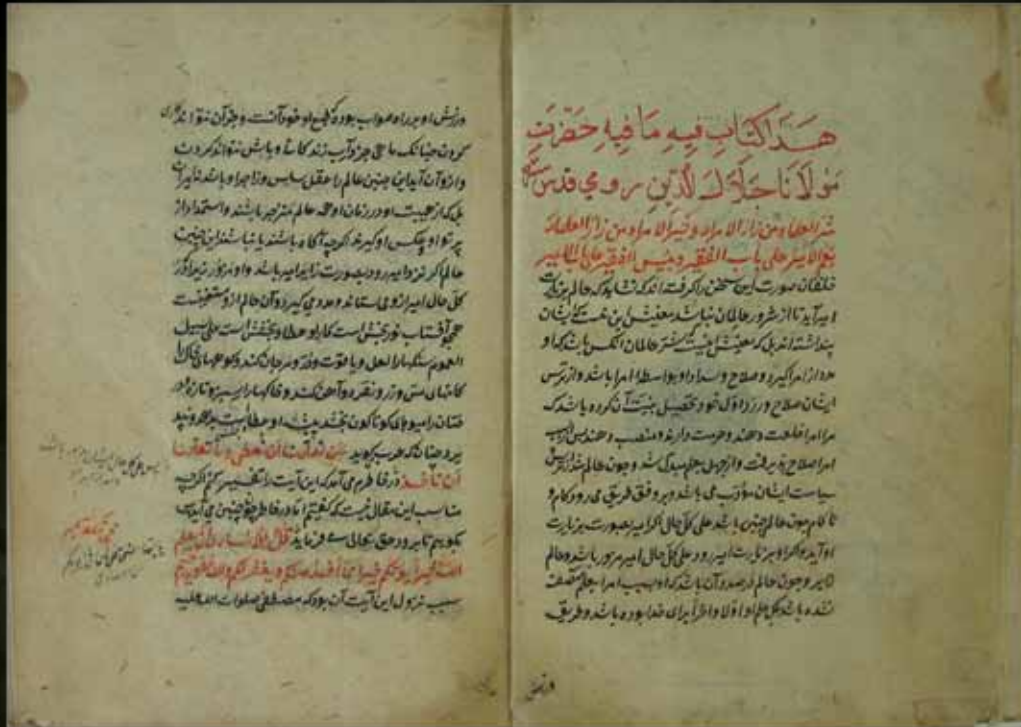 هَذَا كِتَابِ فِيهِ مَا فِيهِ حَضْرَتِ
مَولَانَا جَلَالَ الَّدِينِ رومی قدس
شر العلماء من زار الامراء و خیر الامراء من زار العلماء
نعم الامیر علی باب الفقیر و بئس الفقیر علی باب الامیر
خلقان صورت این سخن را گرفته اند که نشاید که عالم بزیارت
امیر آید تا از شرور عالمان نباشد معنیش این نیست که ایشان
پنداشته اند بل که معنیش اینست که شر عالمان آنکس باشد که او
مدد از امرا گیرد و صلاح و سداد او بواسطه امرا باشد و از ترس
ایشان اول خود تحصیل بنیت آن کرده باشد که
مرا امرا صلت دهند و حرمت دارند و منصب دهند پس از سبب
امرا اصلاح پذیرفت و از جهل بعلم مبدل شد و چون عالم شد از ترس
سیاست ایشان مؤدب می باشد و بر وفق طریق می رود کام و
ناکام چون عالم چنین باشد علی کل حال اگر امیر بصورت بزیارت
او آید و اگر او بزیارت امیر رود علی کل حال امیر مزور باشد و عالم
زایر و چون عالم درصدد آن باشد که او بسبب امرا بعلم متصف
نشده باشد بل علم او اولا و آخرا برای خدا بوده باشد و طریق
ورزش او بر راه صواب بوده که طبع او خود آنست و جز آن نتواند
کردن چنانک ماهی جز در آب زندگانی و باش نتواند کردن
و ازو آن آید این چنین عالم را عقل سایس و زاجر باشد
که از هیبت او در زمان او همه عالم منزجر باشند و استمداد از
پرتو او و عکس او گیرند اگرچه آگاه باشند یا نباشند این چنین
عالم اگر نزد امیر رود بصورت زایر امیر باشد و او مزور زیرا در
کل حال امیر ازو می ستاند و مدد می گیرد و آن عالم ازو مستغنیست
همچو آفتاب نوربخش است کار او عطا و بخشش است علی سبیل
العموم سنگها را لعل و یاقوت و در و مرجان کند و کوههای خاکی را
کانهای مس و زر و نقره و آهن کند و خاکها را سبز و تازه و در
ختان را میوهای گوناگون بخشد پیشه او عطاست
چنانک عرب گوید نحن تعلمنا ان نعطی و ما تعلمنا
ان ناخذ در خاطرم می آید که این آیت را تفسیر کنم اگرچه
مناسب این مقال نیست که گفتیم اما در خاطر چنین می آید پس
بگوییم تا برود حق تعالی می فرماید
سبب نزول این آیت آن بود که مصطفی صلوات الله علیه